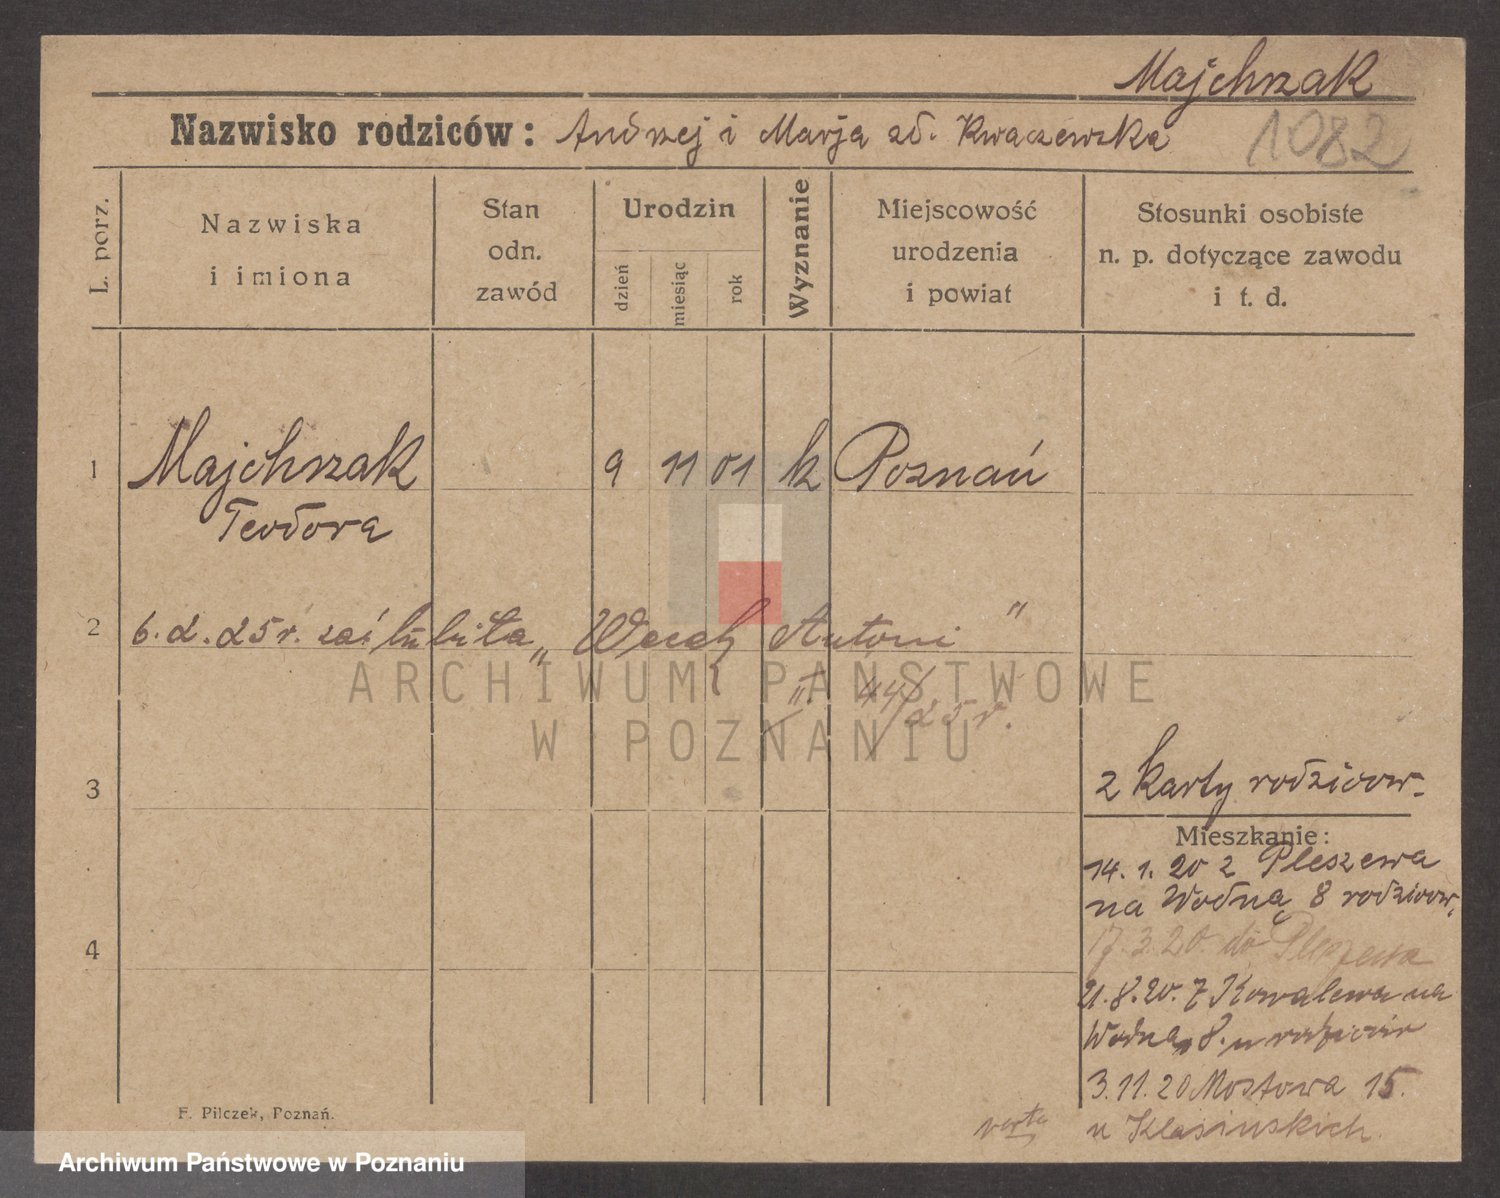 Majchrzak
Nazwisko rodziców: Andrzej i Marja zd. Kwaczewska
1082
L. porz.
Nazwiska
i imiona
Stan
odn.
zawód
Urodzin
dzień
miesiąc
rok
Wyznanie
Miejscowość
urodzenia
i powiat
Stosunki osobiste
n. p. dotyczące zawodu
i t. d.
1 Majchrzak 9 11 01 k Poznań
Teodora
2 6. 2. 25 r. zaślubiła „ Antoni "
ARCHIWUM PAŃSTWOWE
44/25 r.
W POZNANIU
3
2 karty rodziców.
Mieszkanie:
14. 1. 20 z Pleszewa
na Wodną 8 rodziców.
17. 3. 20. do Pleszewa
4
21. 8. 20. z Kowalewa na
Wodna 8. u rodziców
3. 11. 20 Mostowa 15.
u Klasinskich
verte
F. Pilczek, Poznań.
Archiwum Państwowe w Poznaniu